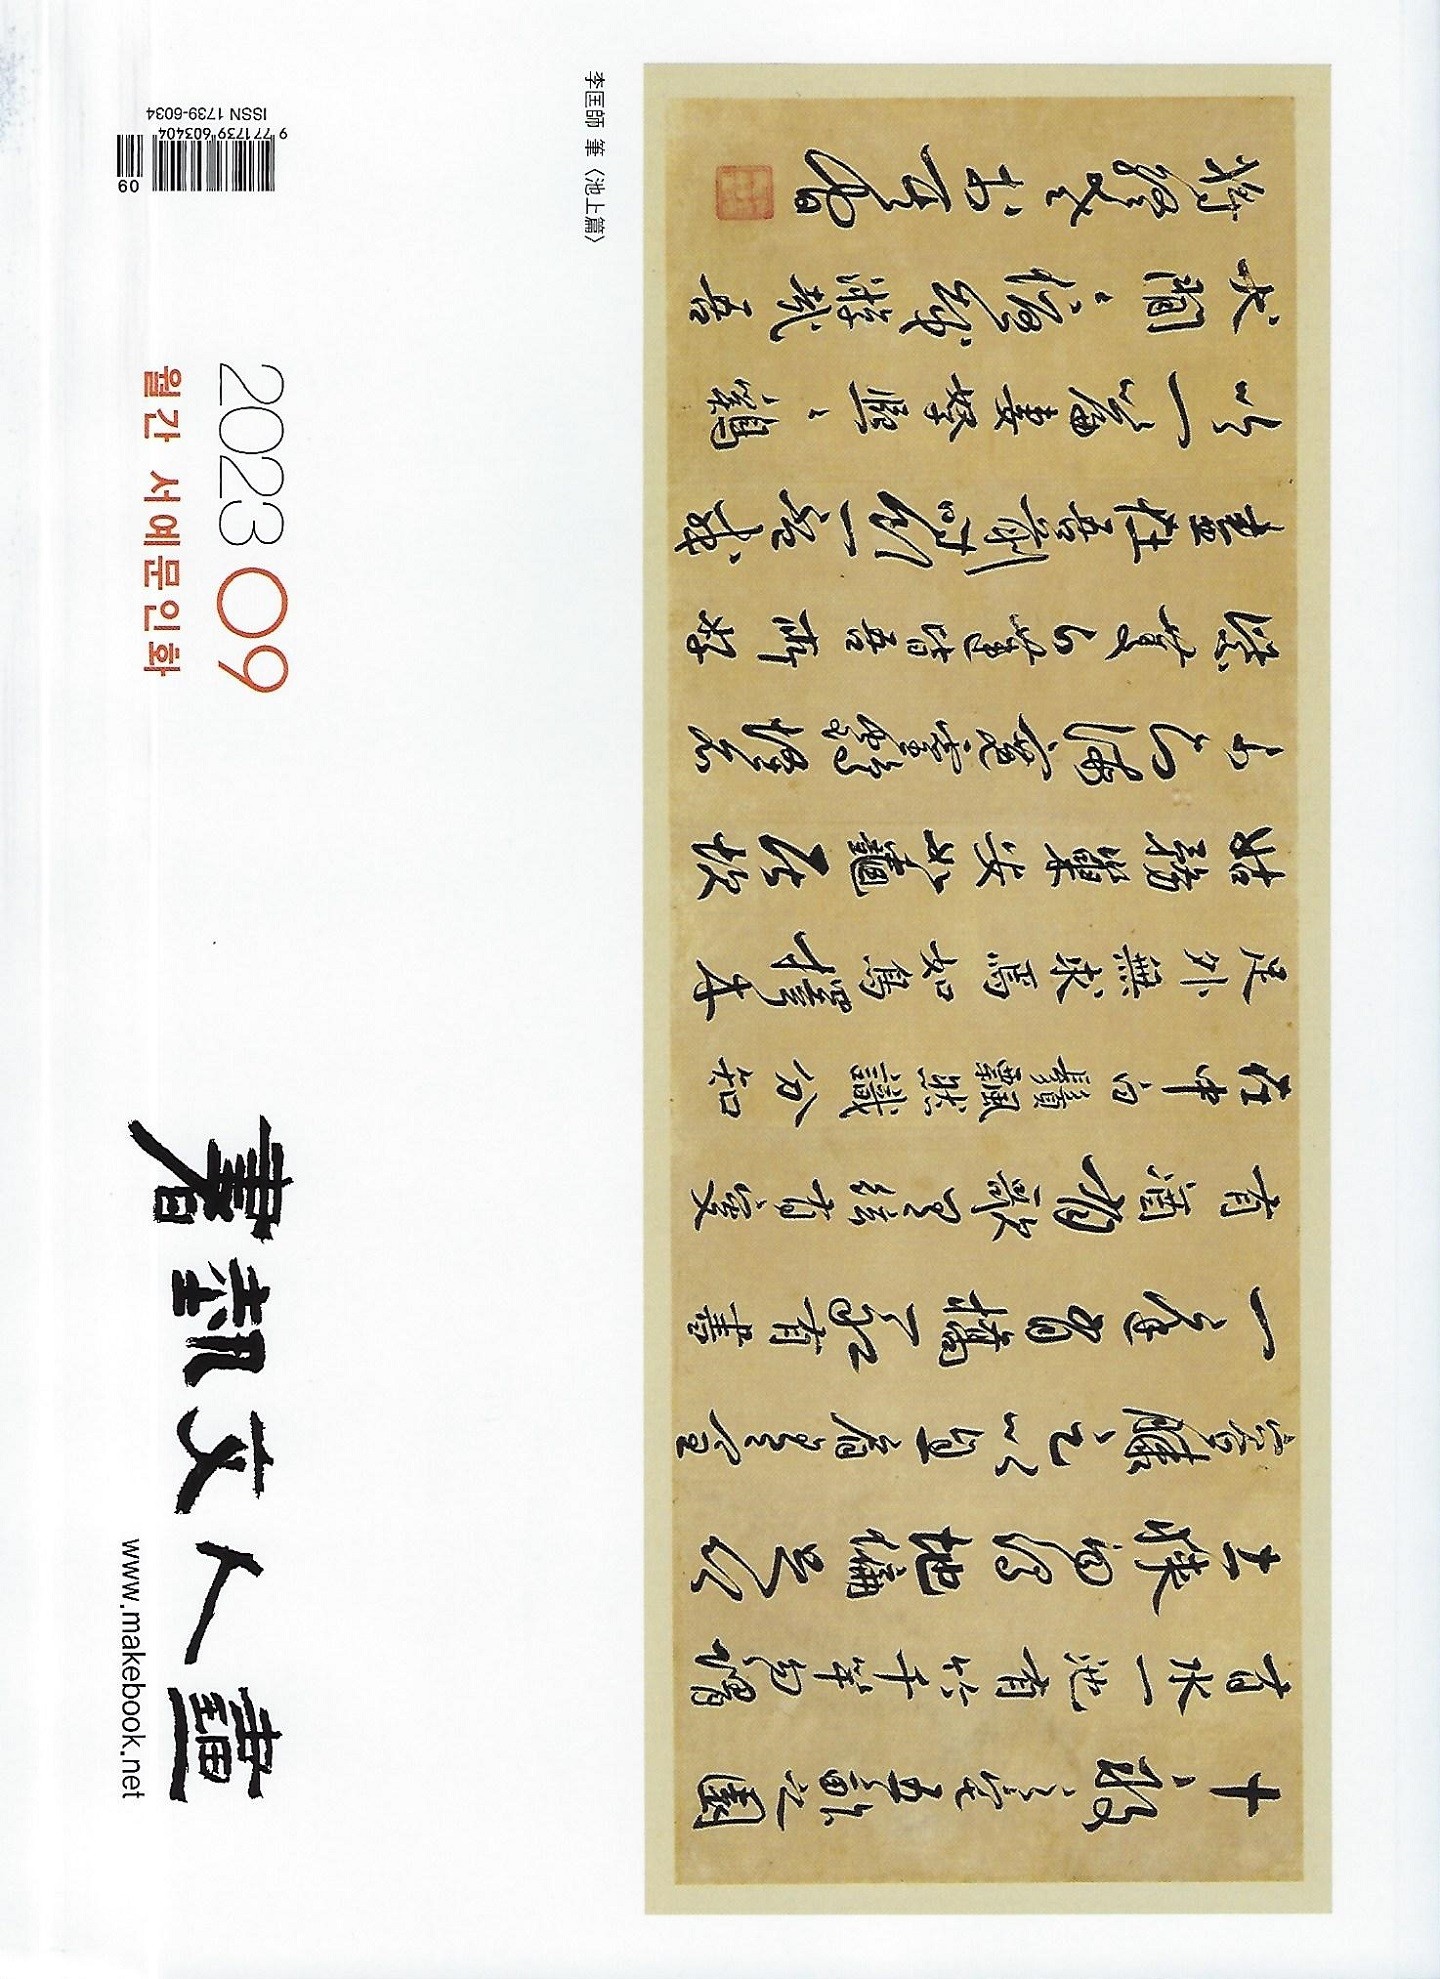 十畝之宅五畝之園
有水一池有竹千竿勿謂
土狹勿謂地偏足以
容膝足以息肩有堂
有庭有橋有船有書
有酒有歌有絃有叟
在中白鬚飄然識分知
足外無求焉如鳥擇木
姑務巢安如龜居坎
不知海寬靈鶴怪石
紫菱白蓮皆吾所好
盡在吾前時飲一盃或
吟一篇妻孥熙〻鷄
犬閒〻優哉游哉吾
將終老
李匡師 筆 〈池上篇〉
2023 09
월간 서예문인화
書藝文人畵
www.makebook.net
ISSN 1739-6034
9 771739 603404
09